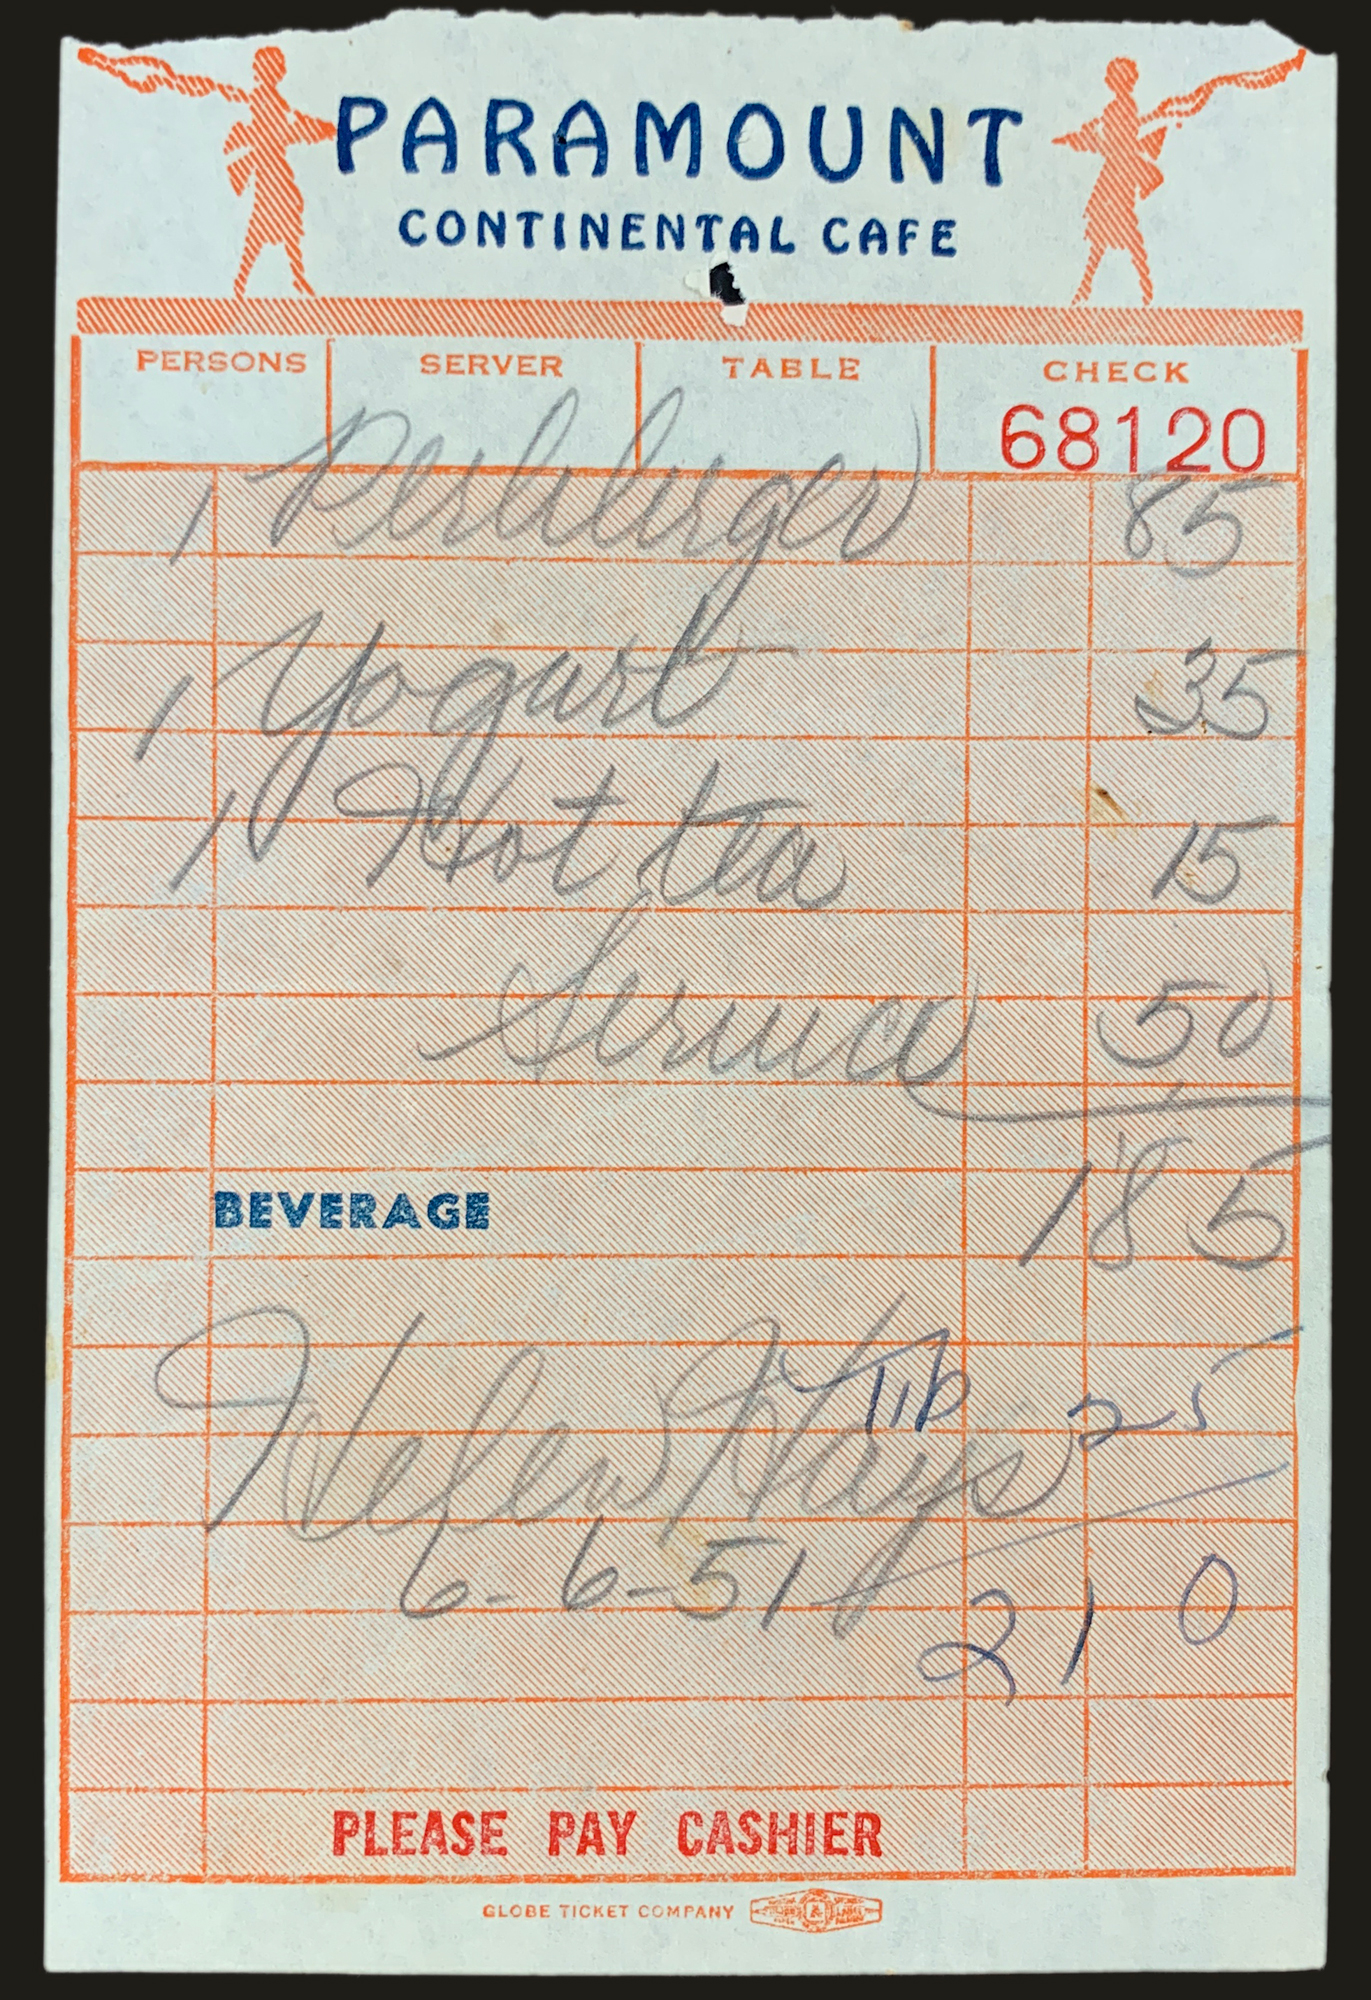 PARAMOUNT
CONTINENTAL CAFE
PERSONS SERVER TABLE CHECK
68120
1 85
1 Yogurt 35
1 Hot tea 15
Service 50
1 85
BEVERAGE
Tip 25
Helen Hays
6-6-51
2 10
PLEASE PAY CASHIER
GLOBE TICKET COMPANY